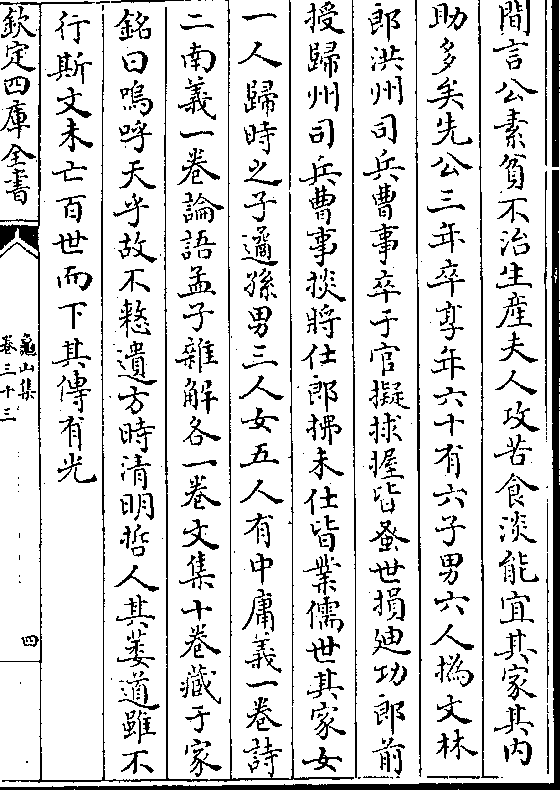 間言公素貧不治生産夫人攻苦食淡能宜其家其内
助多矣先公三年卒享年六十有六子男六人撝文林
郎洪州司兵曹事卒于官擬捄握皆蚤世損廸功郎前
授歸州司兵曹事掞將仕郎拂未仕皆業儒世其家女
一人歸時之子遹孫男三人女五人有中庸義一卷詩
二南義一卷論語孟子雜解各一卷文集十卷藏于家
銘曰嗚呼天乎故不憗遺方時清明哲人其萎道雖不
行斯文未亡百世而下其傳有光
欽定四庫全書
龜山集
卷三十三
四